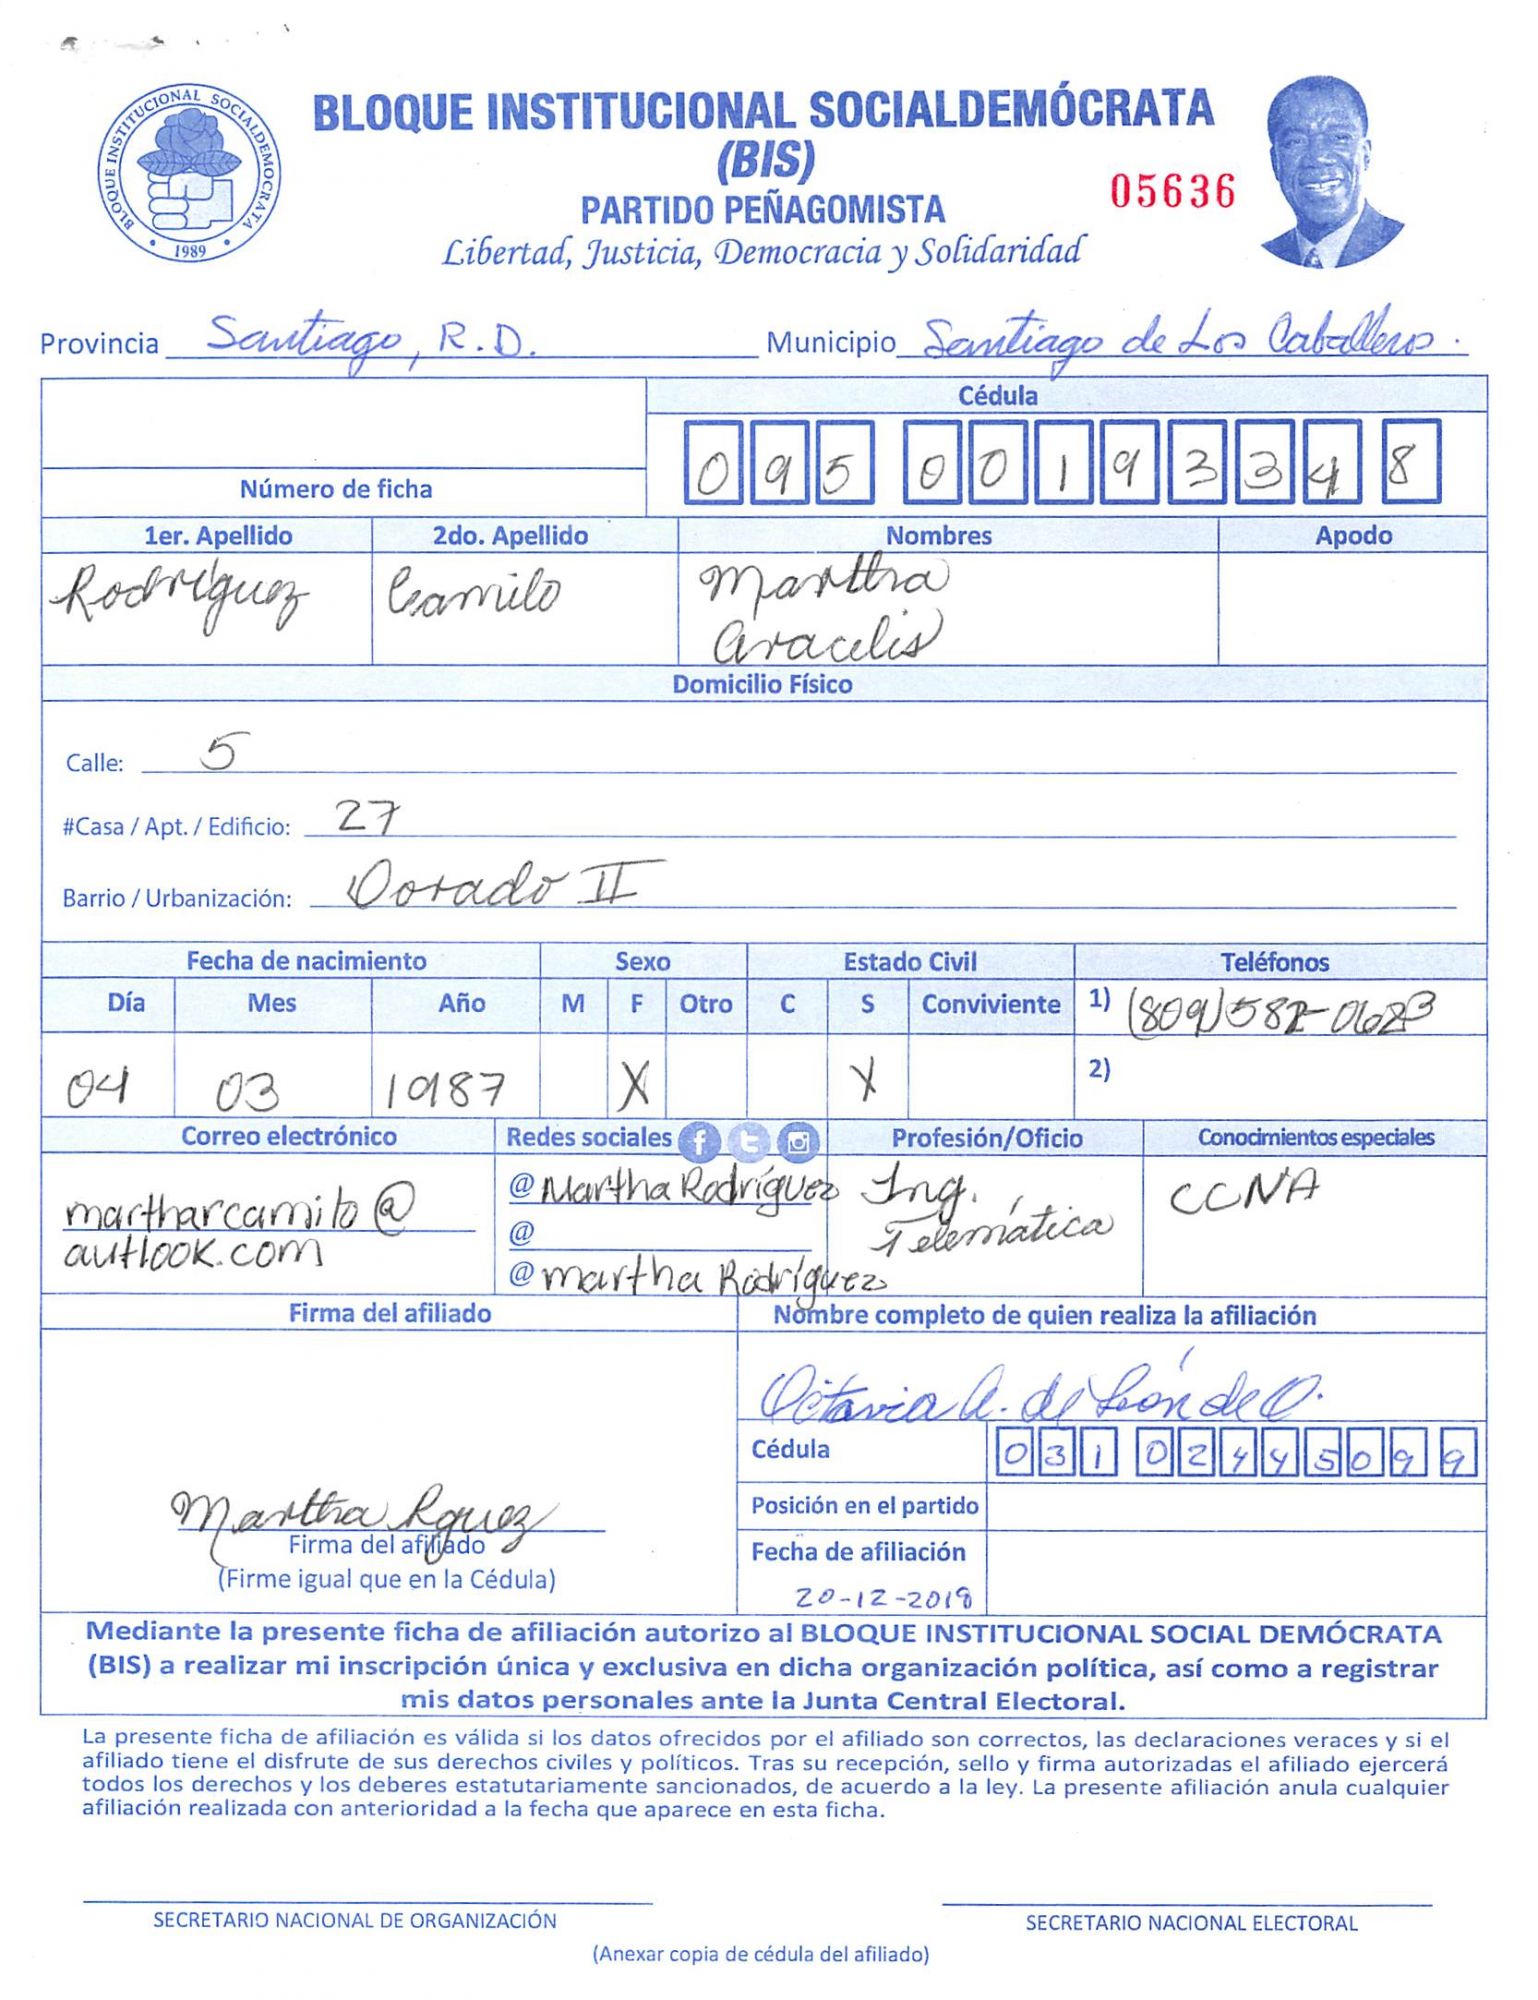 BLOQUE INSTITUCIONAL SOCIALDEMOCRATA
1989
BLOQUE INSTITUCIONAL SOCIALDEMÓCRATA
(BIS)
PARTIDO PEÑAGOMISTA
05636
Libertad, Justicia, Democracia y Solidaridad
Provincia Santiago, R.D. Municipio Santiago de Los Caballeros.
Cédula
095 0019334 8
Número de ficha
1er. Apellido 2do. Apellido Nombres Apodo
Rodríguez Camilo Martha
Aracelis
Domicilio Físico
Calle: 5
#Casa / Apt. / Edificio: 27
Barrio / Urbanización: Dorado II
Fecha de nacimiento Sexo Estado Civil Teléfonos
Día Mes Año M F Otro C S Conviviente 1) (809)582-0623
04 03 1987 X X 2)
Correo electrónico Redes sociales Profesión/Oficio Conocimientos especiales
martharcamilo@ @Martha Rodríguez Ing. CCNA
autlook.com @ Telemática
@martha Rodríguez
Firma del afiliado Nombre completo de quien realiza la afiliación
Octavia A. de León de O.
Cédula 031 0244509 9
Posición en el partido
Martha Rguez
Firma del afiliado
Fecha de afiliación
(Firme igual que en la Cédula)
20-12-2018
Mediante la presente ficha de afiliación autorizo al BLOQUE INSTITUCIONAL SOCIAL DEMÓCRATA
(BIS) a realizar mi inscripción única y exclusiva en dicha organización política, así como a registrar
mis datos personales ante la Junta Central Electoral.
La presente ficha de afiliación es válida si los datos ofrecidos por el afiliado son correctos, las declaraciones veraces y si el
afiliado tiene el disfrute de sus derechos civiles y políticos. Tras su recepción, sello y firma autorizadas el afiliado ejercerá
todos los derechos y los deberes estatutariamente sancionados, de acuerdo a la ley. La presente afiliación anula cualquier
afiliación realizada con anterioridad a la fecha que aparece en esta ficha.
SECRETARIO NACIONAL DE ORGANIZACIÓN SECRETARIO NACIONAL ELECTORAL
(Anexar copia de cédula del afiliado)